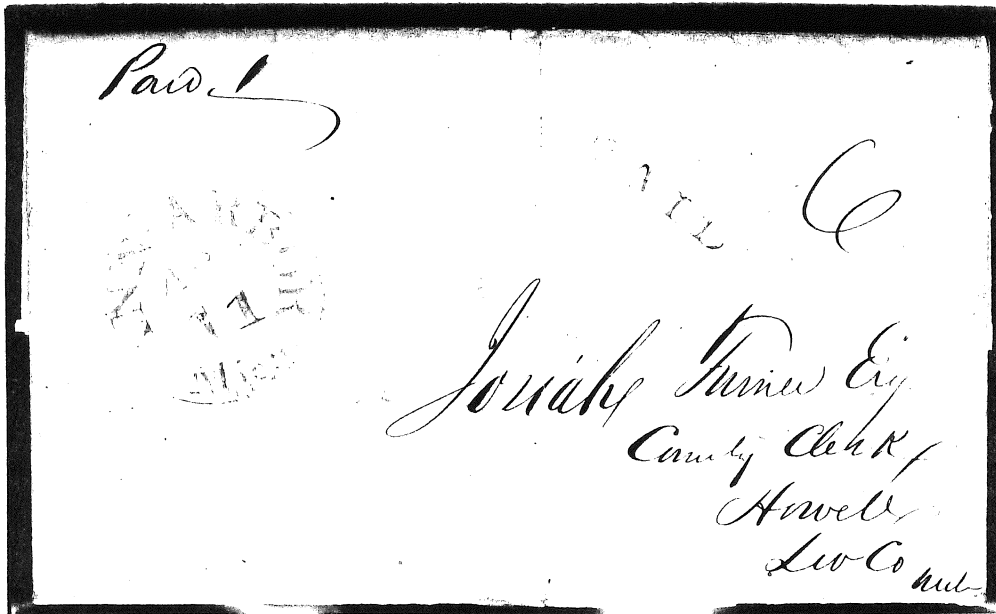 Paid.
6
Josiah Turner Esq
County Clerk
Howell
Liv Co Mich